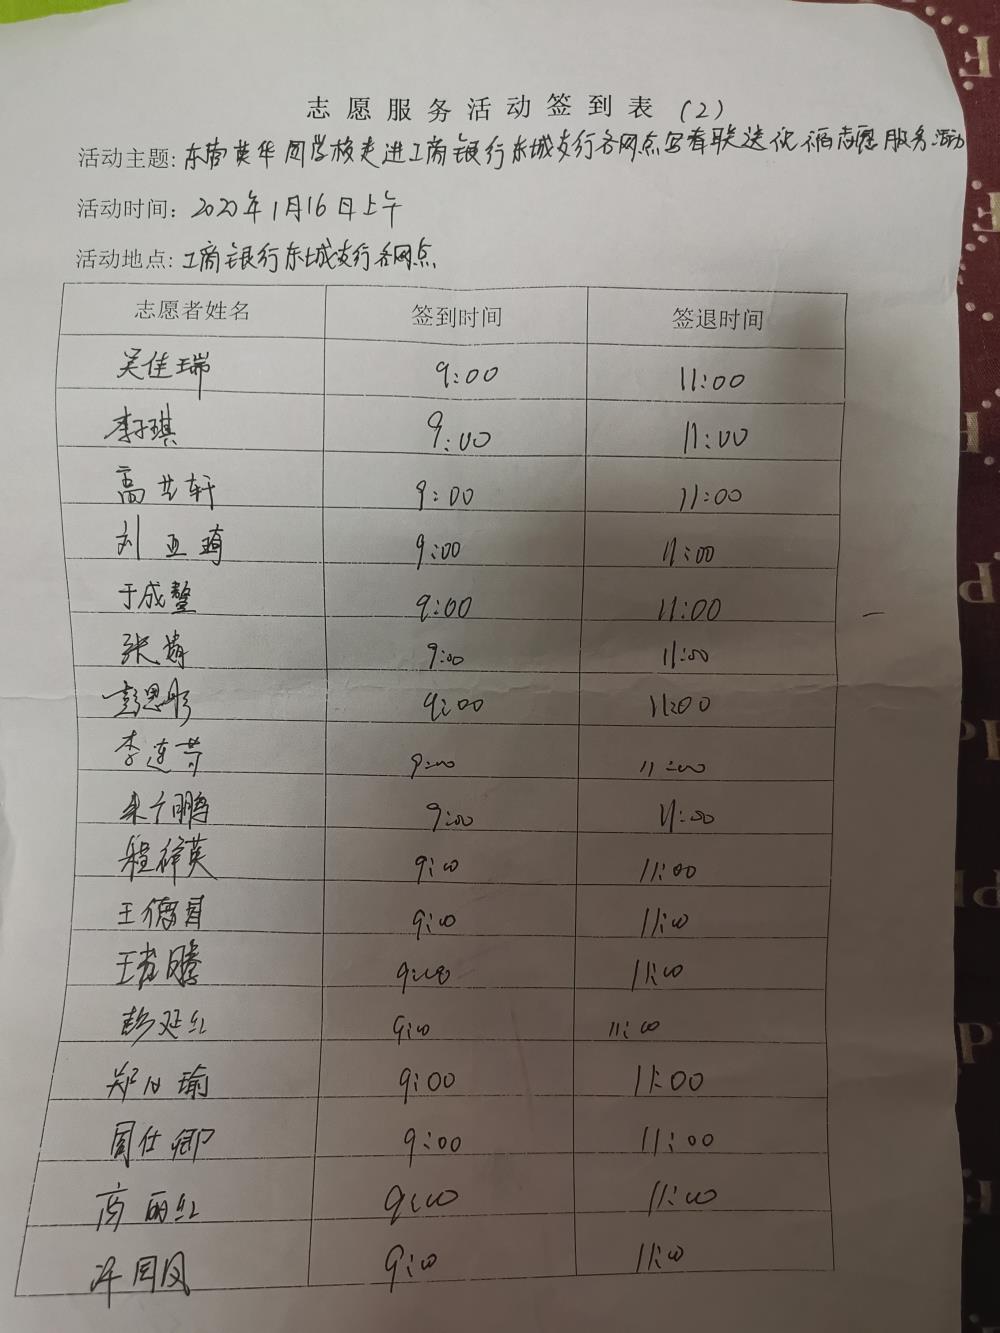 志愿服务活动签到表(2)
活动主题:东营英华国学校走进工商银行东城支行各网点写春联送祝福志愿服务活动
活动时间:2020年1月16日上午
活动地点:工商银行东城支行各网点
志愿者姓名 签到时间 签退时间
吴佳瑞 9:00 11:00
李子琪 9:00 11:00
高艺轩 9:00 11:00
刘亚琦 9:00 11:00
于成鳌 9:00 11:00
张 9:00 11:00
彭思彤 9:00 11:00
李连芳 9:00 11:00
鹏 9:00 11:00
程祥英 9:00 11:00
王德 9:00 11:00
王 腾 9:00 11:00
彭延红 9:00 11:00
郑 瑜 9:00 11:00
周仕卿 9:00 11:00
商丽红 9:00 11:00
国凤 9:00 11:00